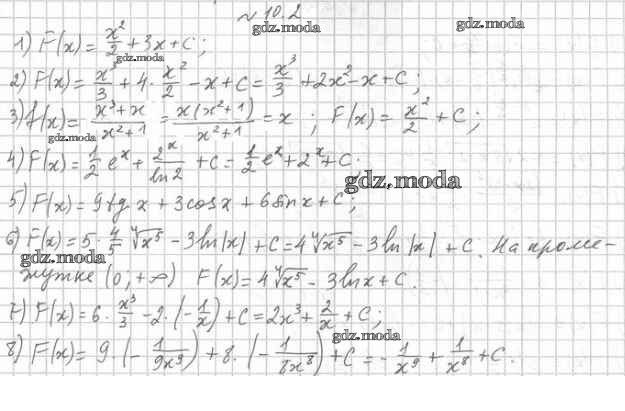 № 10.2
gdz.moda
gdz.moda
1) F(x) = x²/2 + 3x + C;
gdz.moda
2) F(x) = x³/3 + 4 · x²/2 − x + C = x³/3 + 2x² − x + C;
3) f(x) = (x³ + x)/(x² + 1) = x(x² + 1)/(x² + 1) = x ; F(x) = x²/2 + C;
gdz.moda
4) F(x) = 1/2 eˣ + 2ˣ/ln2 + C = 1/2 eˣ + 2ˣ + C;
gdz.moda
5) F(x) = 9tg x + 3cos x + 6sin x + C;
6) F(x) = 5 · 4/5 ∜x⁵ − 3ln|x| + C = 4∜x⁵ − 3ln|x| + C. На проме-
gdz.moda
жутке (0, +∞) F(x) = 4∜x⁵ − 3lnx + C.
7) F(x) = 6 · x³/3 − 2 · (−1/x) + C = 2x³ + 2/x + C;
gdz.moda
8) F(x) = 9 · (−1/9x⁹) + 8 · (−1/8x⁸) + C = −1/x⁹ + 1/x⁸ + C.